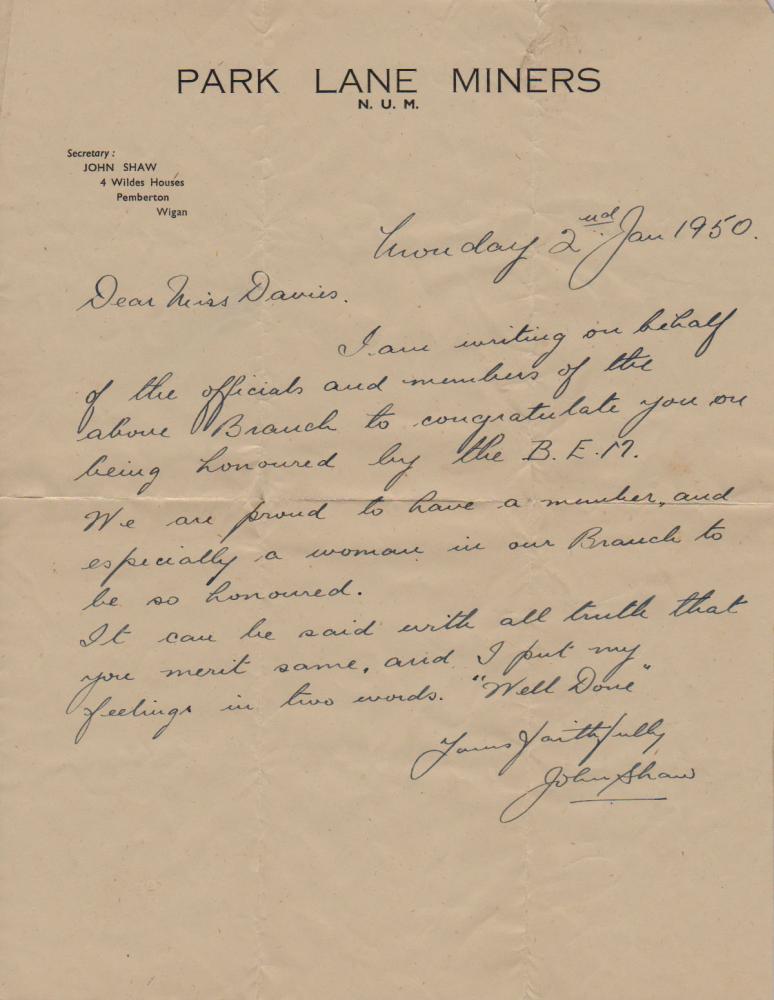 PARK LANE MINERS
N. U. M.
Secretary :
JOHN SHAW
4 Wildes Houses
Pemberton
Wigan
Monday 2nd Jan 1950.
Dear Miss Davies.
I am writing on behalf
of the officials and members of the
above Branch to congratulate you on
being honoured by the B. E. M.
We are proud to have a member, and
especially a woman in our Branch to
be so honoured.
It can be said with all truth that
you merit same, and I put my
feelings in two words. "Well Done"
Yours faithfully
John Shaw